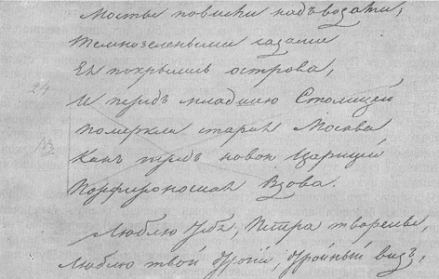 Мосты повисли надъ водами;
Темнозелеными садами
Ея покрылись острова,
И передъ младшею Столицей
Померкла старая Москва
Какъ предъ новою Царицей
Порфироносная Вдова.
Люблю тебя, Петра творенье,
Люблю твой строгій, стройный видъ,